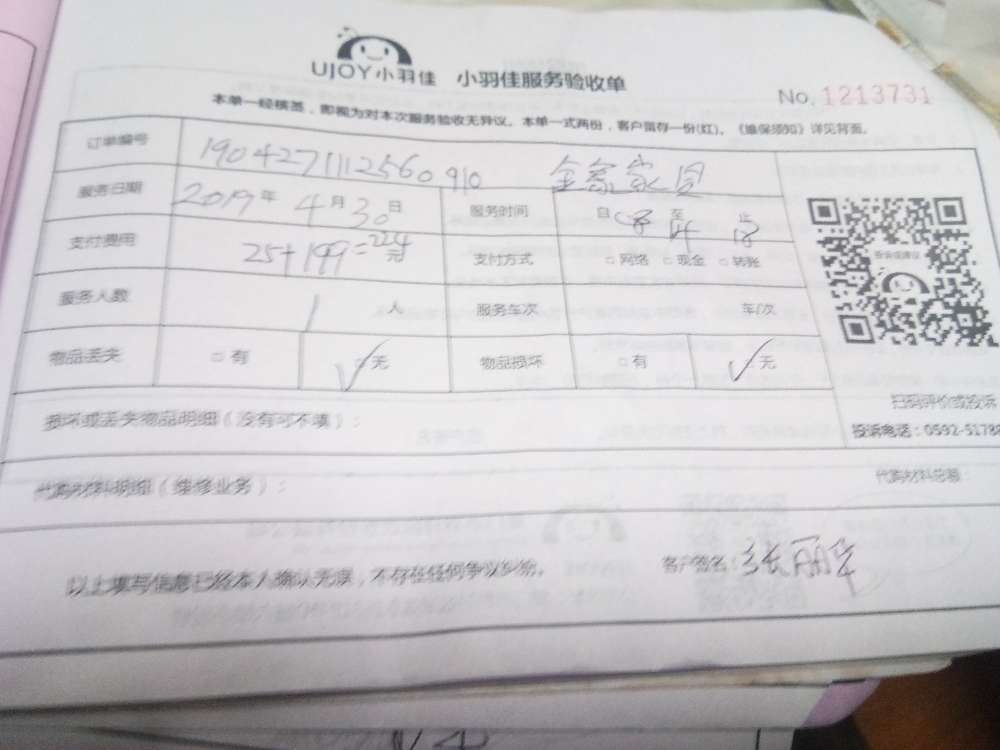 UJOY小羽佳 小羽佳服务验收单
No. 1213731
本单一经核签，即视为对本次服务验收无异议。本单一式两份，客户留存一份(红)。《维保须知》详见背面。
订单编号 1904271112560910 金 家园
服务日期 2019年 4月30日 服务时间 自 至 止
支付费用 25+199=224元 支付方式 □网络 □现金 □转账
服务人数 1 人 服务车次 车/次
物品丢失 □有 □无 物品损坏 □有 □无
投诉或建议
扫码评价或投诉
投诉电话：0592-5178
损坏或丢失物品明细（没有可不填）：
代购材料明细（维修业务）： 代购材料总额：
以上填写信息已经本人确认无误，不存在任何争议纠纷。 客户签名：张丽